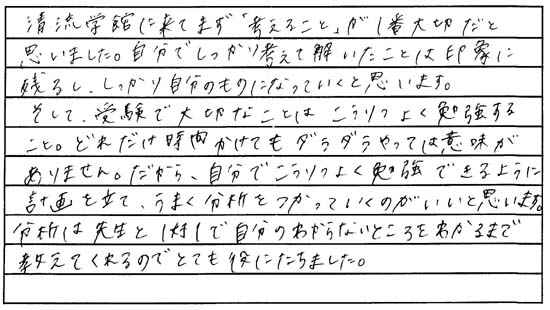 清流学館に来てまず「考えること」が1番大切だと
思いました。自分でしっかり考えて解いたことは印象に
残るし、しっかり自分のものになっていくと思います。
そして、受験で大切なことはこうりつよく勉強する
こと。どれだけ時間かけてもダラダラやっては意味が
ありません。だから、自分でこうりつよく勉強できるように
計画を立て、うまく分析をつかっていくのがいいと思います。
分析は先生と1対1で自分のわからないところをわかるまで
教えてくれるのでとても役にたちました。